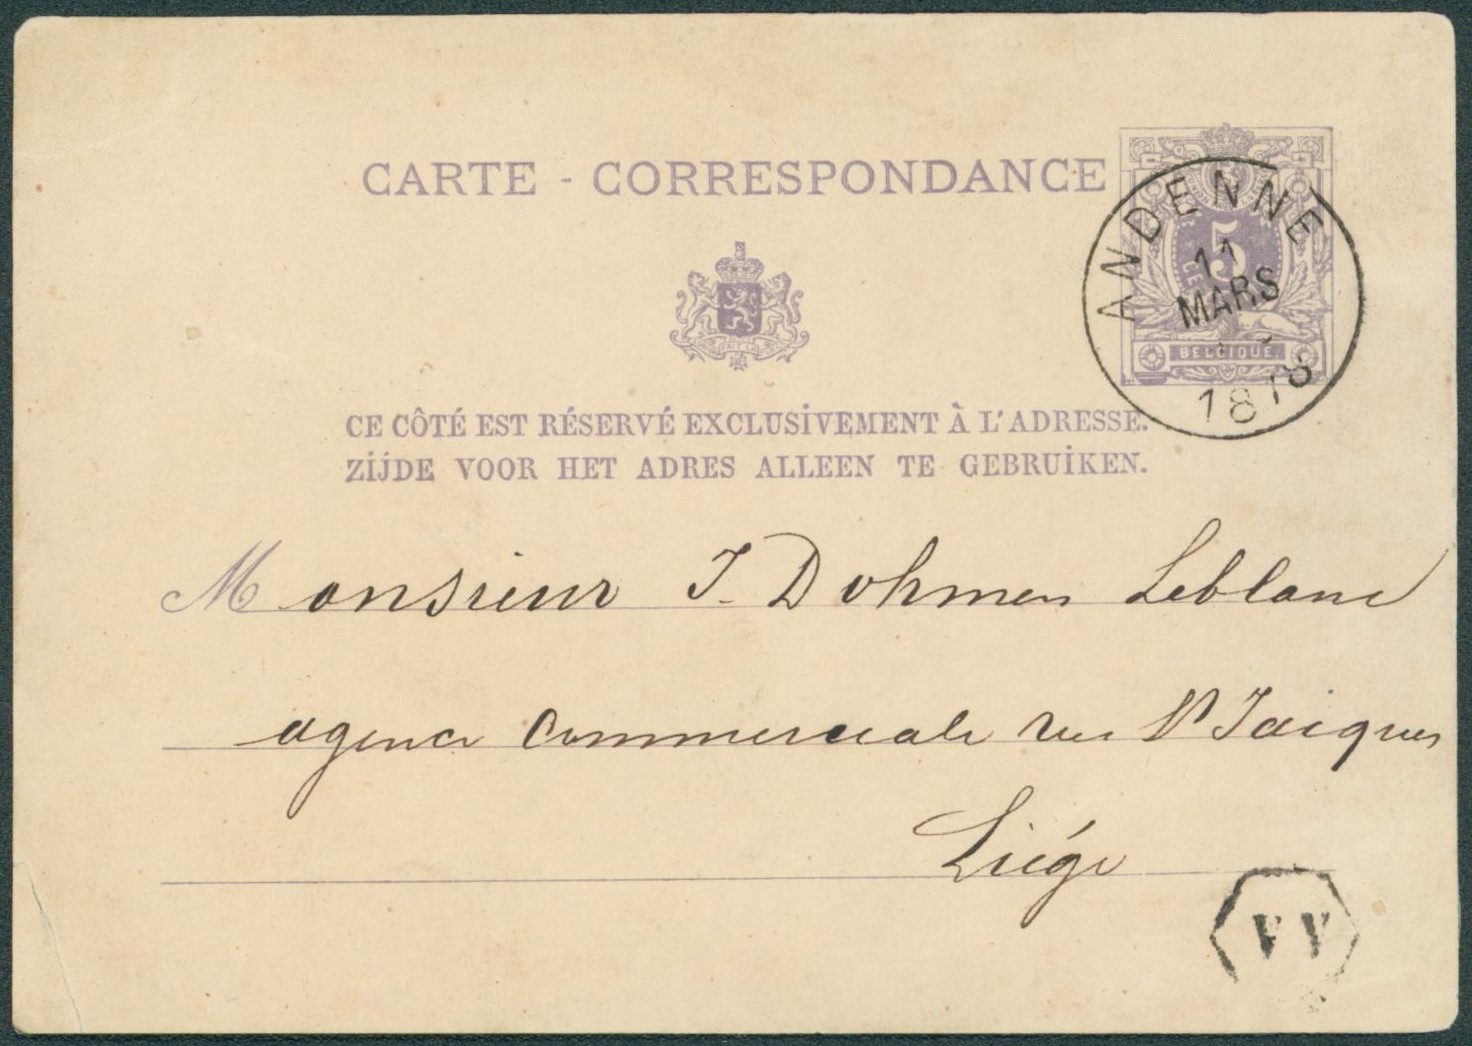 CARTE - CORRESPONDANCE
5
BELGIQUE.
ANDENNE
11
MARS
1878
CE CÔTÉ EST RÉSERVÉ EXCLUSIVEMENT À L'ADRESSE.
ZIJDE VOOR HET ADRES ALLEEN TE GEBRUIKEN.
Monsieur J. Dohmen Leblanc
agence Commerciale rue St Jacques
Liége